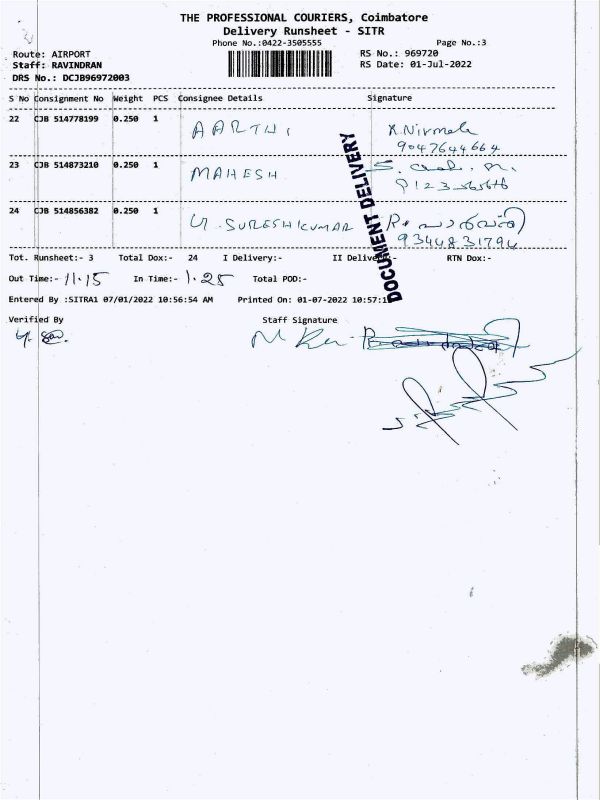 THE PROFESSIONAL COURIERS, Coimbatore
Delivery Runsheet - SITR
Phone No.:0422-3505555 Page No.:3
Route: AIRPORT RS No.: 969720
Staff: RAVINDRAN RS Date: 01-Jul-2022
DRS No.: DCJB96972003
S No Consignment No Weight PCS Consignee Details Signature
22 CJB 514778199 0.250 1 AARTHI K.Nirmala
9047644664
23 CJB 514873210 0.250 1 MAHESH
24 CJB 514856382 0.250 1 SURESHKUMAR
9344831794
DOCUMENT DELIVERY
Tot. Runsheet:- 3 Total Dox:- 24 I Delivery:- II Delivery:- RTN Dox:-
Out Time:- 11.15 In Time:- 1.25 Total POD:-
Entered By :SITRA1 07/01/2022 10:56:54 AM Printed On: 01-07-2022 10:57:1
Verified By Staff Signature